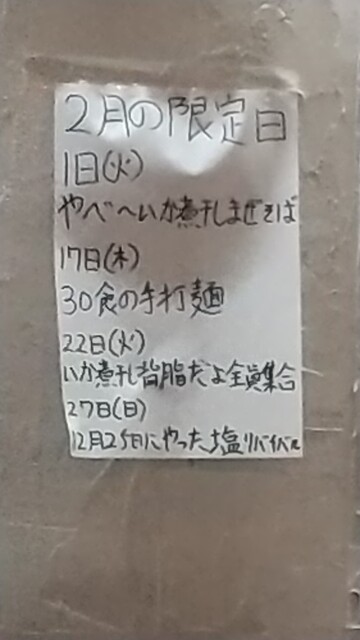 2月の限定日
1日(火)
やべ〜いか煮干しまぜそば
17日(木)
30食の手打麺
22日(火)
いか煮干し背脂だよ全員集合
27日(日)
12月25日にやった塩リバイバル